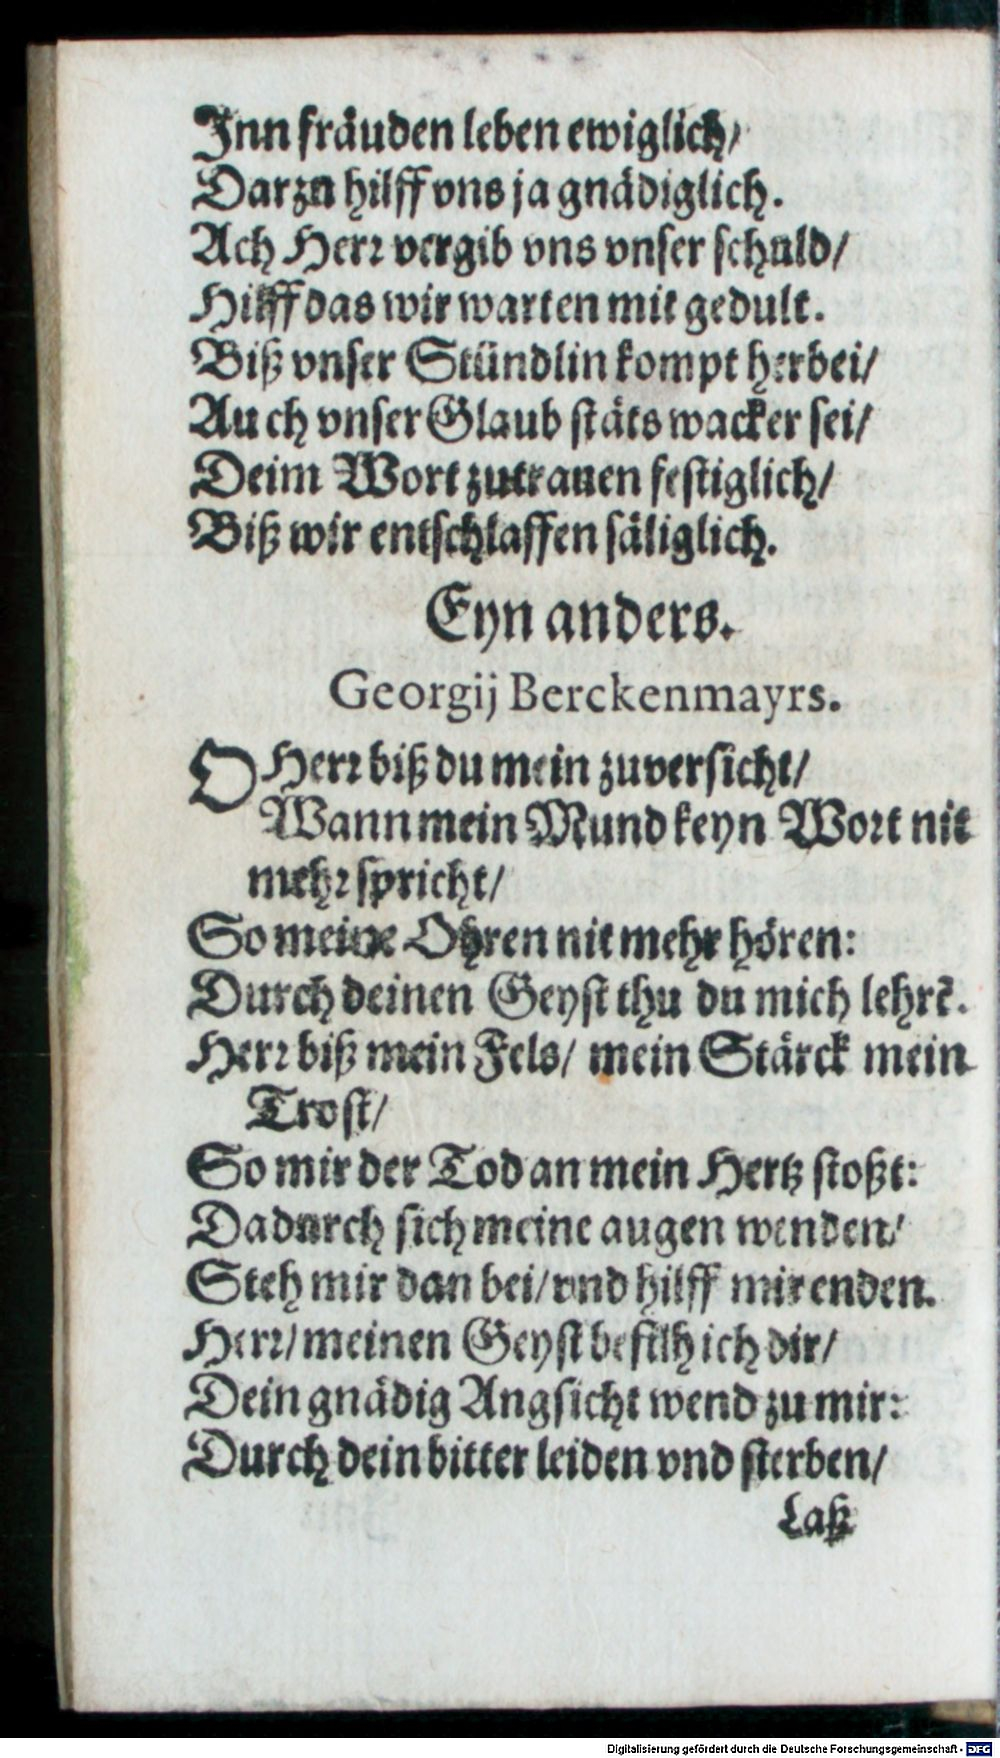 Inn fräuden leben ewiglich/
Darzu hilff vns ja gnädiglich.
Ach Herr vergib vns vnser schuld/
Hilff das wir warten mit gedult.
Biß vnser Stündlin kompt herbei/
Auch vnser Glaub stäts wacker sei/
Deim Wort zutrauen festiglich/
Biß wir entschlaffen säliglich.
Eyn anders.
Georgij Berckenmayrs.
O Herr biß du mein zuversicht/
Wann mein Mund keyn Wort nit
mehr spricht/
So meine Ohren nit mehr hören:
Durch deinen Geyst thu du mich lehrẽ.
Herr biß mein Fels/ mein Stärck mein
Trost/
So mir der Tod an mein Hertz stoßt:
Dadurch sich meine augen wenden/
Steh mir dan bei/ vnd hilff mir enden.
Herr/ meinen Geyst befilh ich dir/
Dein gnädig Angsicht wend zu mir:
Durch dein bitter leiden vnd sterben/
Laß
Digitalisierung gefördert durch die Deutsche Forschungsgemeinschaft - DFG